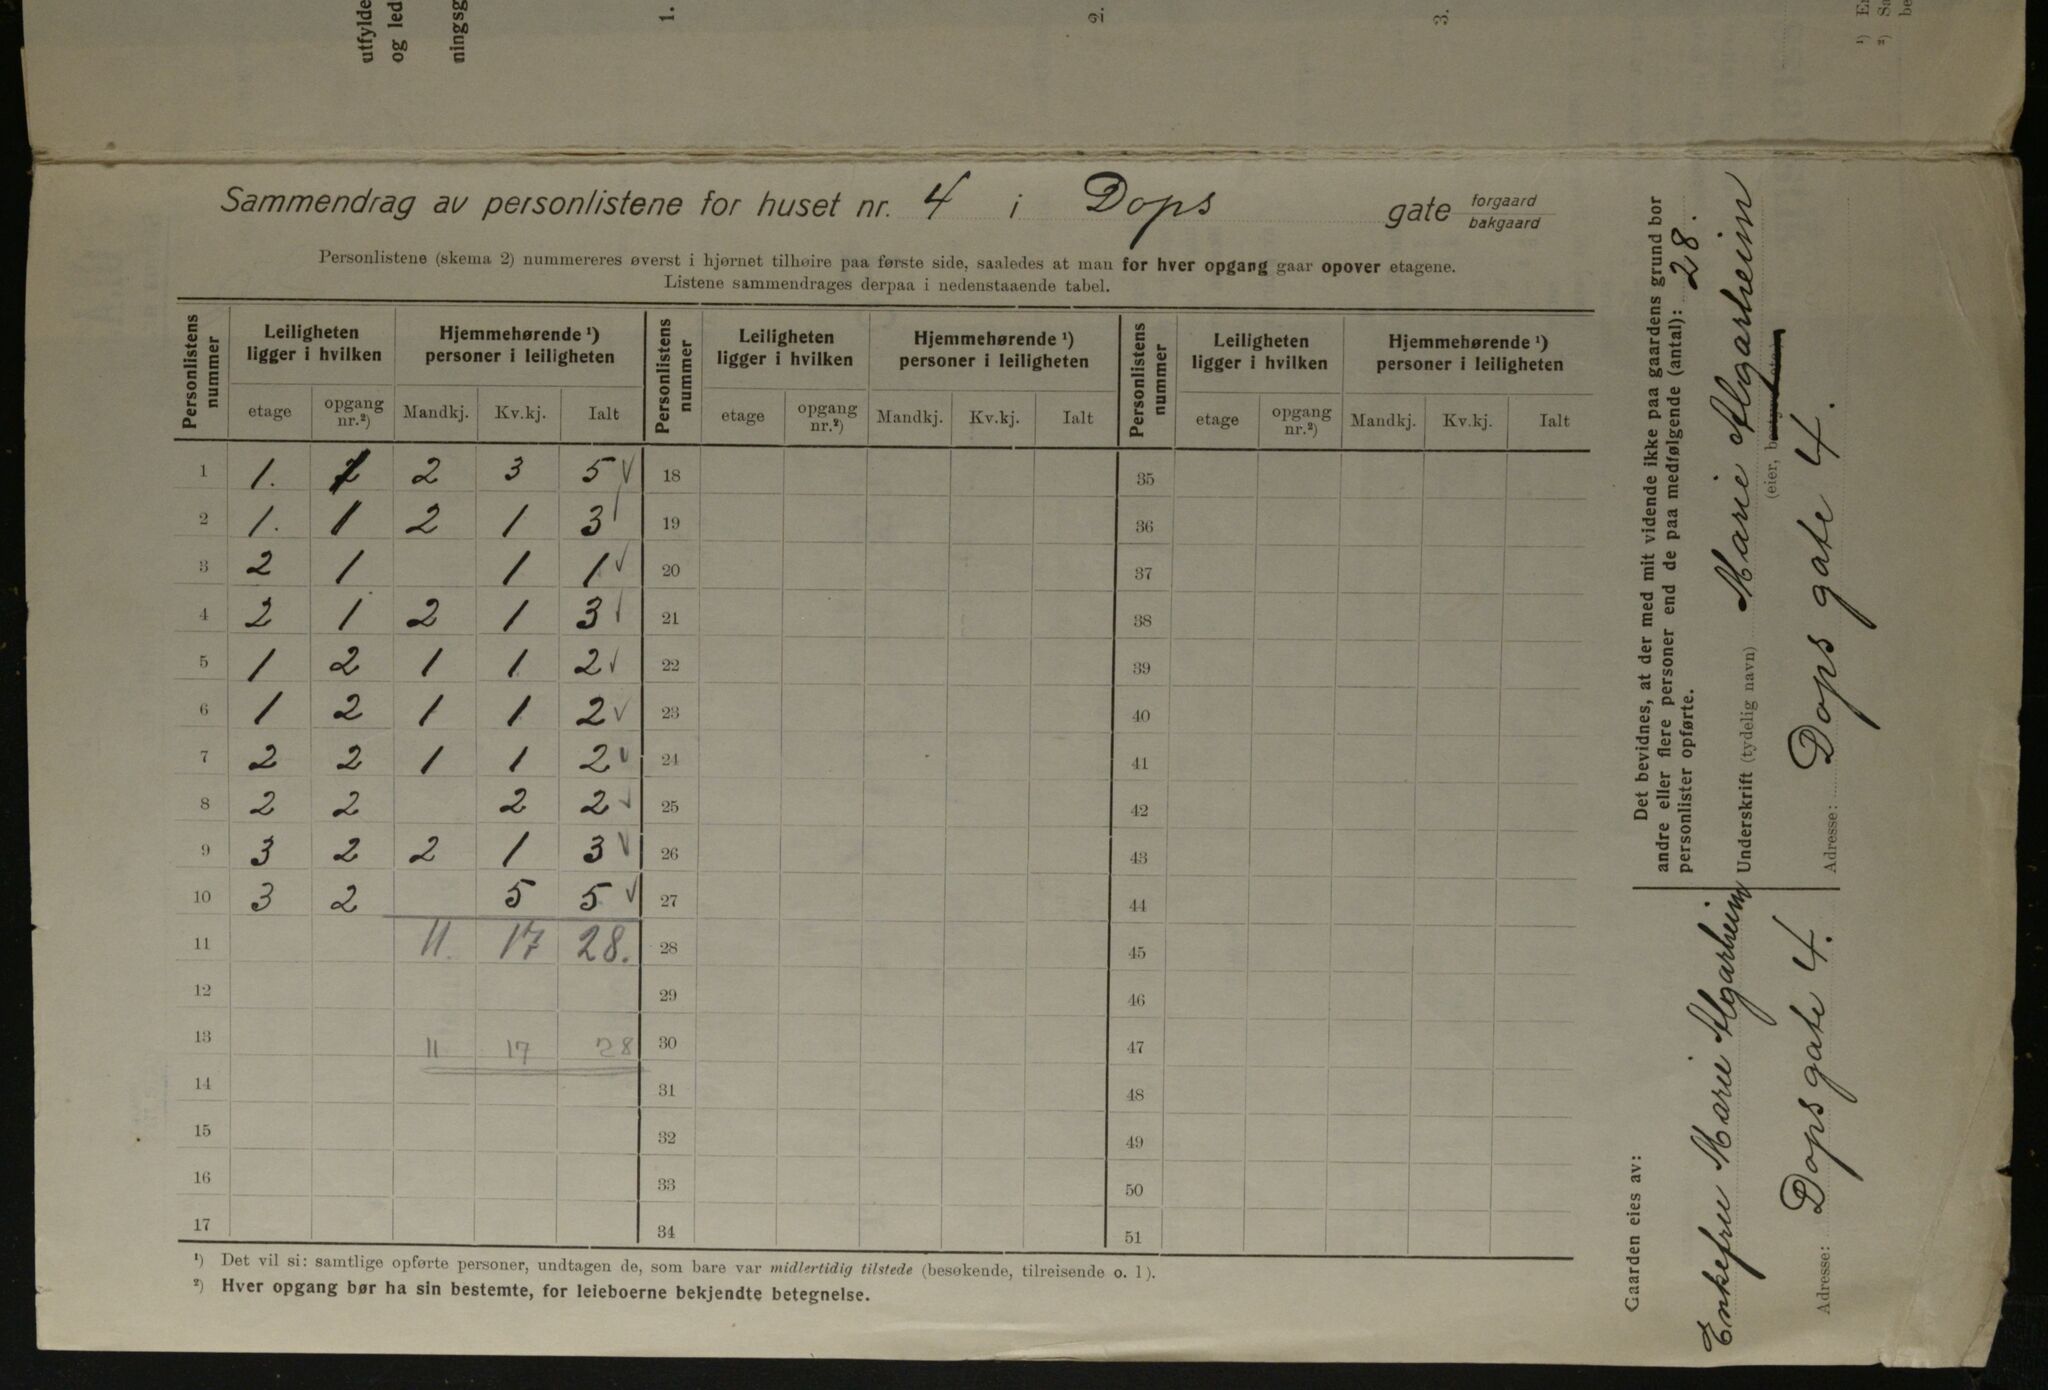 utfylde
og led
ningsg
1.
2.
3.
¹) En
²) Sa
be
Sammendrag av personlistene for huset nr. 4 i Dops gate forgaard
bakgaard
Personlistene (skema 2) nummereres øverst i hjørnet tilhøire paa første side, saaledes at man for hver opgang gaar opover etagene.
Listene sammendrages derpaa i nedenstaaende tabel.
Personlistens nummer | Leiligheten ligger i hvilken | Hjemmehørende ¹) personer i leiligheten | Personlistens nummer | Leiligheten ligger i hvilken | Hjemmehørende ¹) personer i leiligheten | Personlistens nummer | Leiligheten ligger i hvilken | Hjemmehørende ¹) personer i leiligheten
etage | opgang nr.²) | Mandkj. | Kv.kj. | Ialt | etage | opgang nr.²) | Mandkj. | Kv.kj. | Ialt | etage | opgang nr.²) | Mandkj. | Kv.kj. | Ialt
1 1. 1 2 3 5 ✓ 18 35
2 1. 1 2 1 3 ✓ 19 36
3 2 1 1 1 ✓ 20 37
4 2 1 2 1 3 ✓ 21 38
5 1 2 1 1 2 ✓ 22 39
6 1 2 1 1 2 ✓ 23 40
7 2 2 1 1 2 ✓ 24 41
8 2 2 2 2 ✓ 25 42
9 3 2 2 1 3 ✓ 26 43
10 3 2 5 5 ✓ 27 44
11 11. 17 28. 28 45
12 29 46
13 11 17 28 30 47
14 31 48
15 32 49
16 33 50
17 34 51
¹) Det vil si: samtlige opførte personer, undtagen de, som bare var midlertidig tilstede (besøkende, tilreisende o. l).
²) Hver opgang bør ha sin bestemte, for leieboerne bekjendte betegnelse.
Det bevidnes, at der med mit vidende ikke paa gaardens grund bor
andre eller flere personer end de paa medfølgende (antal): 28.
personlister opførte.
Underskrift (tydelig navn) Marie Algarheim
(eier, bestyrer etc.)
Adresse: Dops gate 4.
Gaarden eies av:
Enkefru Marie Algarheim
Adresse: Dops gate 4.